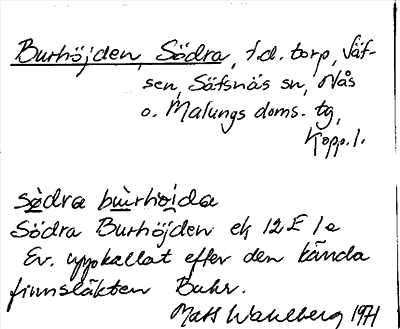 Burhöjden, Södra, f.d. torp, Säf-
sen, Säfsnäs sn, Nås
o. Malungs doms. tg,
Kopp. l.
södra bu̲rhöida
Södra Burhöjden ek 12 E 1e
Ev. uppkallat efter den kända
finnsläkten Buhr.
Mats Wahlberg 1971